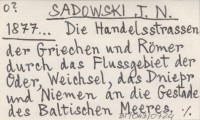 0?
SADOWSKI J. N.
1877... Die Handelsstrassen
der Griechen und Römer
durch das Flussgebiet der
Oder, Weichsel, das Dniepr
und Niemen an die Gestade
des Baltischen Meeres. ·/.